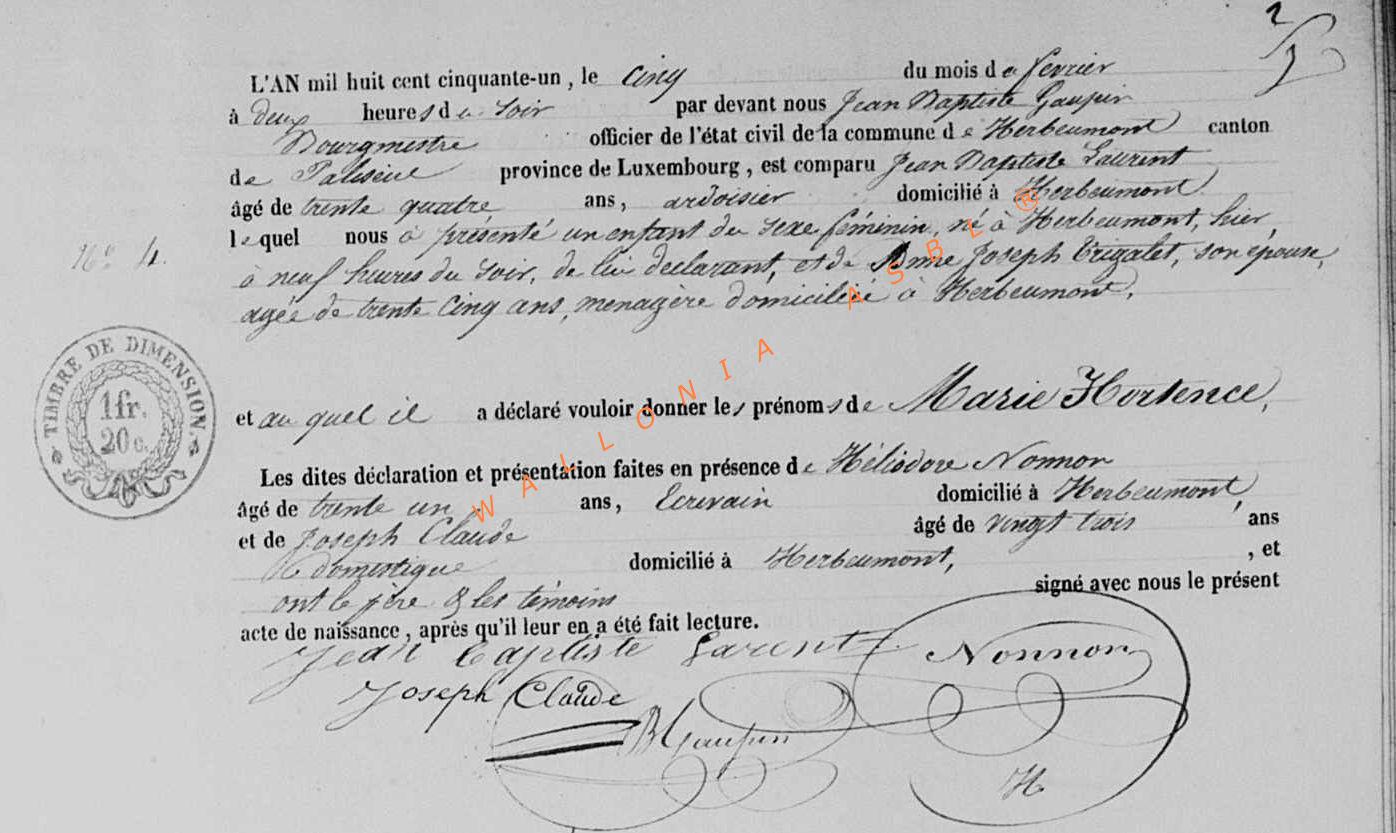 2
L'AN mil huit cent cinquante-un, le cinq du mois de fevrier
à deux heures de soir par devant nous Jean Baptiste Gaupin
Bourgmestre officier de l'état civil de la commune de Herbeumont canton
de Paliseul province de Luxembourg, est comparu Jean Baptiste Laurent
âgé de trente quatre ans, ardoisier domicilié à Herbeumont
lequel nous a présenté un enfant du sexe féminin, né à Herbeumont, hier,
à neuf heures du soir, de lui déclarant, et de Anne Joseph Trigalet, son épouse,
agée de trente cinq ans, menagère domiciliée à Herbeumont.
N° 4.
TIMBRE DE DIMENSION
1fr.
20 c.
et au quel il a déclaré vouloir donner les prénoms de Marie Hortence,
Les dites déclaration et présentation faites en présence de Héliodore Nonnon
âgé de trente un ans, Ecrivain domicilié à Herbeumont,
et de Joseph Claude âgé de vingt trois ans
domestique domicilié à Herbeumont, , et
ont le père & les témoins signé avec nous le présent
acte de naissance, après qu'il leur en a été fait lecture.
Jean Baptiste Larent Nonnon
Joseph Claude
JBGaupin
H
WALLONIA ASBL ®